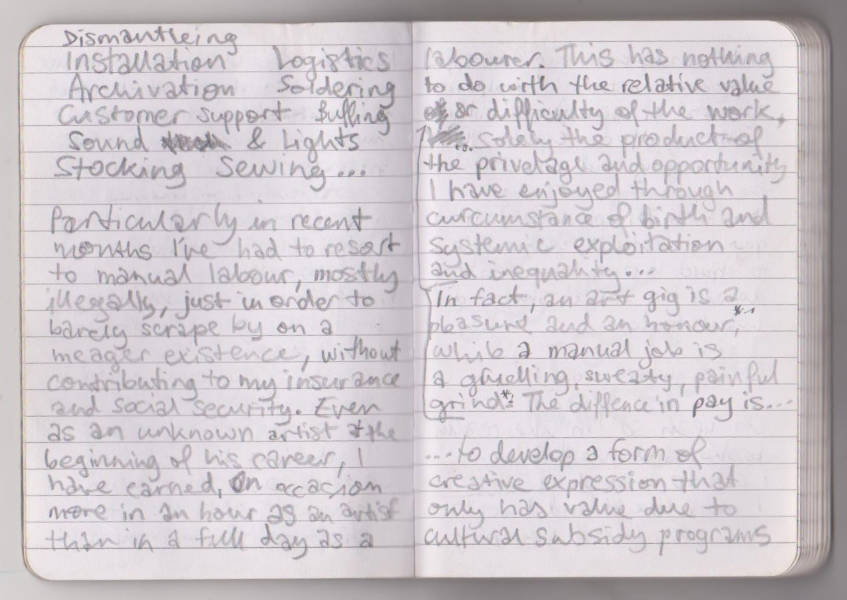 Dismantleing
Installation Logistics
Archivation Soldering
Customer support Buffing
Sound & Lights
Stocking Sewing...
Particularly in recent
months I've had to resort
to manual labour, mostly
illegally, just in order to
barely scrape by on a
meager existence, without
contributing to my insurance
and social security. Even
as an unknown artist at the
beginning of his career, I
have earned, on occasion
more in an hour as an artist
than in a full day as a
labourer. This has nothing
to do with the relative value
or difficulty of the work,
... solely the product of
the privelage and opportunity
I have enjoyed through
curcumstance of birth and
systemic exploitation
and inequality...
In fact, an art gig is a
pleasure and an honour,*1
while a manual job is
a gruelling, sweaty, painful
grind*2 The diffence in pay is...
...to develop a form of
creative expression that
only has value due to
cultural subsidy programs